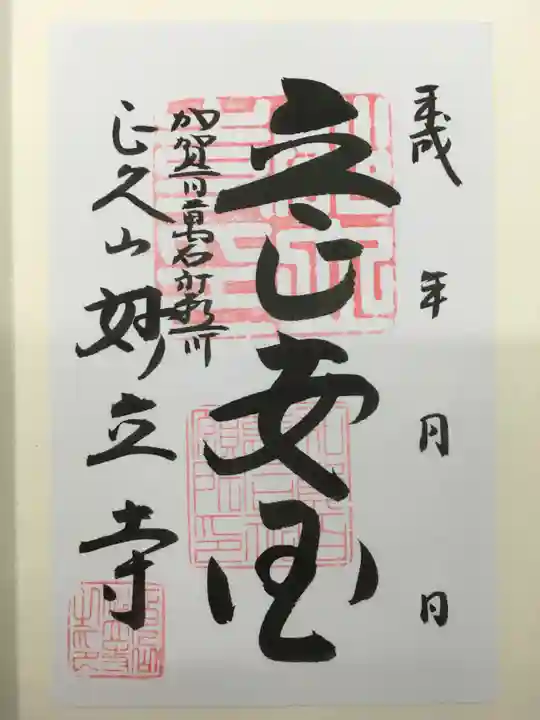 平成 年 月 日
立正安国
加賀百萬石祈願所
正久山妙立寺